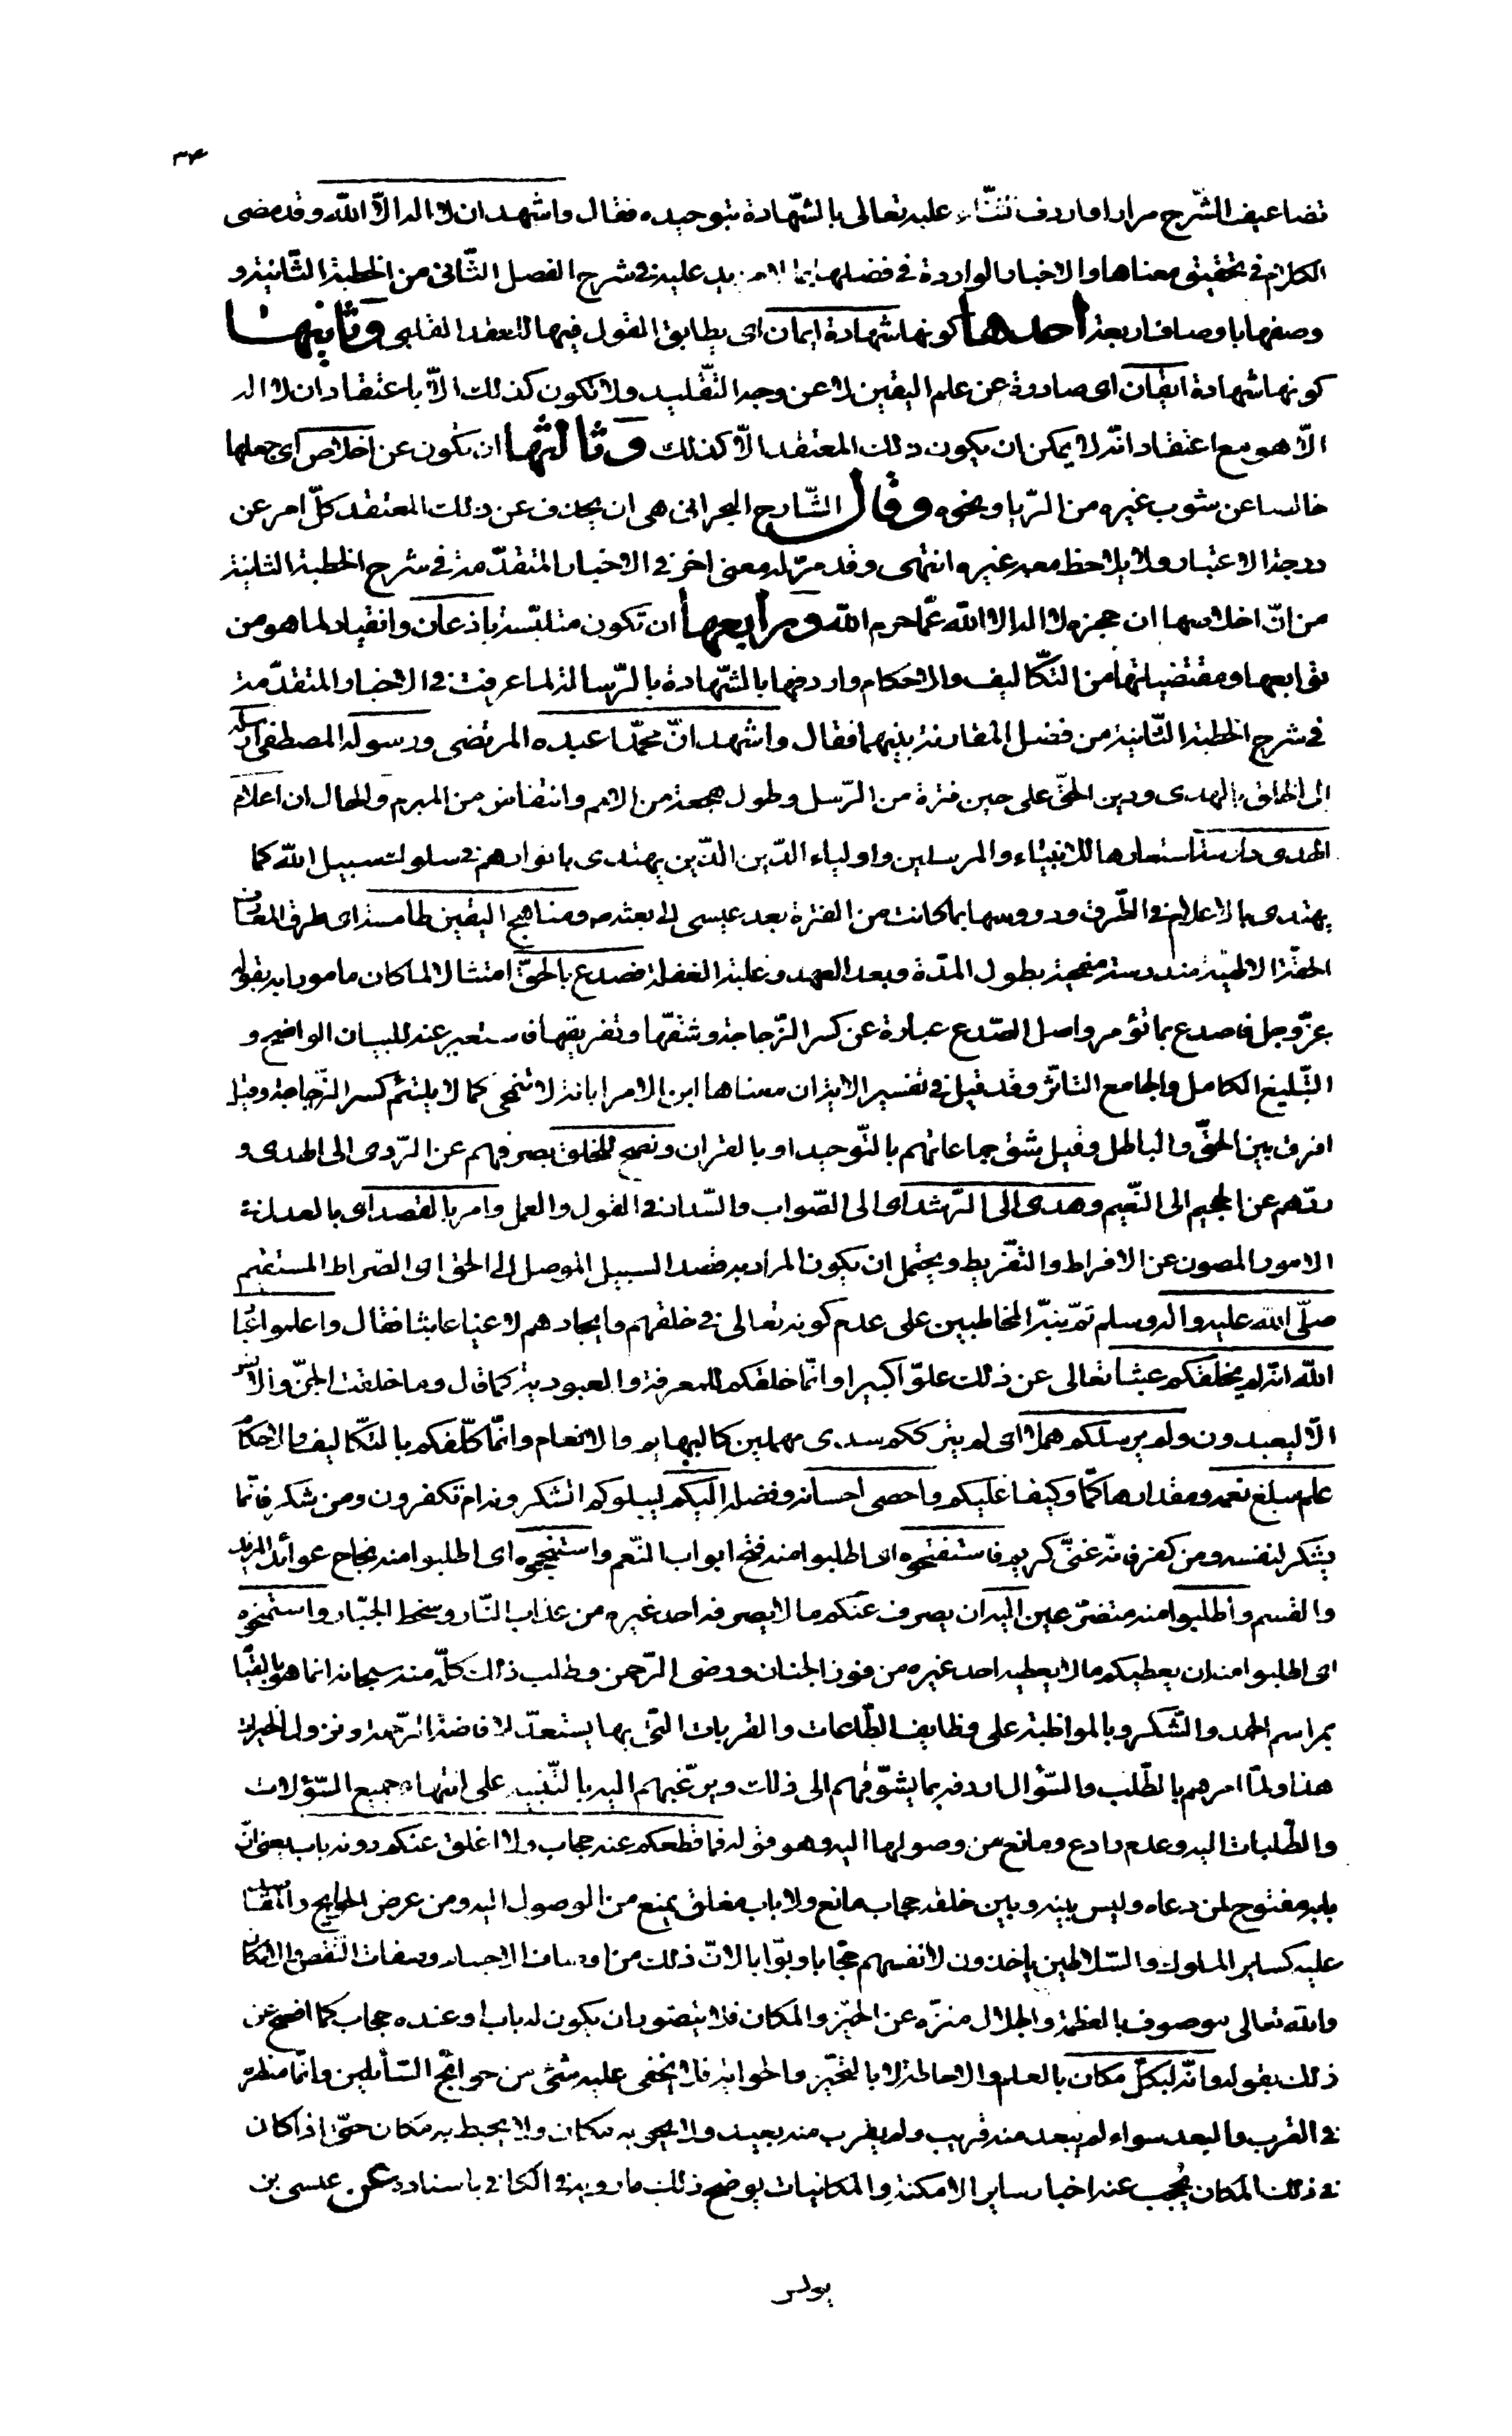 ۳۴
تضاعيف الشّرح مرارا و اردف ثنائه عليه تعالى بالشّهادة بتوحيده فقال و اشهد ان لا اله الّا اللّه و قد مضى
الكلام في تحقيق معناها و الاخبار الواردة في فضلها بما لا مزيد عليه في شرح الفصل الثّاني من الخطبة الثّانية و
وصفها باوصاف اربعة احدها كونها شهادة ايمان اى يطابق القول فيها للعقد القلبي و ثانيها
كونها شهادة ايقان اى صادرة عن علم اليقين لا عن وجه التّقليد و لا تكون كذلك الّا باعتقاد ان لا اله
الّا هو مع اعتقاد انّه لا يمكن ان يكون ذلك المعتقد الّا كذلك و ثالثها ان تكون عن اخلاص اى جعلها
خالصا عن شوب غيره من الرّيا و نحوه و قال الشّارح البحراني هى ان يحذف عن ذلك المعتقد كلّ امر عن
درجة الاعتبار و لا يلاحظ معه غيره انتهى و قد مرّ له معنى اخر في الاخبار المتقدّمة في شرح الخطبة الثانية
من انّ اخلاصها ان حجزه لا اله الا اللّه عمّا حرم اللّه و رابعها ان تكون متلبّسة باذعان و انقياد لما هو من
توابعها و مقتضياتها من التكاليف و الاحكام و اردفها بالشّهادة بالرّسالة لما عرفت في الاخبار المتقدّمة
في شرح الخطبة الثّانية من فضل المقارنة بينهما فقال و اشهد انّ محمّدا عبده المرتضى و رسوله المصطفى ارسله
الى الخلق بالهدى و دين الحقّ على حين فترة من الرّسل و طول هجعة من الامم و انتقاض من المبرم و الحال ان اعلام
الهدى دارسة استعارها للانبياء و المرسلين و اولياء الدّين الّذين يهتدى بانوارهم في سلوك سبيل اللّه كما
يهتدى بالاعلام في الطّرق و دروسها بما كانت من الفترة بعد عيسى الى بعثه ص و مناهج اليقين طامسة اى طرق المعارف
الحقّة الالهيّة مندرسة منمحية بطول المدّة و بعد العهد و غلبة الغفلة فصدع بالحقّ امتثالا لما كان مامورا به بقوله
عزّ و جل فاصدع بما تؤمر و اصل الصّدع عبارة عن كسر الزّجاجة و شقّها و تفريقها فاستعير عنه للبيان الواضح و
التّبليغ الكامل و الجامع التاثّر و قد قيل في تفسير الاية ان معناها ابن الامر ابانة لا تنمحى كما لا يلتئم كسر الزّجاجة و قيل
افرق بين الحقّ و الباطل و قيل شق جماعاتهم بالتّوحيد او بالقران و نصح للخلق بصرفهم عن الرّدى الى الهدى و
ردّهم عن الجحيم الى النّعيم و هدى الى الرّشد اى الى الصّواب و السّداد في القول و العمل و امر بالقصد اى بالعدل في
الامور المصون عن الافراط و التّفريط و يحتمل ان يكون المراد به قصد السبيل الموصل الى الحق اى الصّراط المستقيم
صلّى اللّه عليه و اله و سلم ثمّ نبّه المخاطبين على عدم كونه تعالى في خلقهم و ايجادهم لاغيا عابثا فقال و اعلموا عباد
اللّه انّه لم يخلقكم عبثا تعالى عن ذلك علوّا كبيرا و انّما خلقكم للمعرفة و العبوديّة كما قال و ما خلقت الجنّ و الانس
الّا ليعبدون و لم يرسلكم هملا اى لم يترككم سدى مهملين كالبهايم و الانعام و انّما كلّفكم بالتكاليف و الاحكام
علم مبلغ نعمه و مقدارها كمّا و كيفا عليكم و احصى احسانه و فضله اليكم ليبلوكم اتشكرونه ام تكفرون و من شكر فانّما
يشكر لنفسه و من كفر فانّه غنىّ كريم فاستفتحوه اى اطلبوا منه فتح ابواب النّعم و استنجحوه اى اطلبوا منه نجاح عوائد المزيد
و القسم و اطلبوا منه متضرّعين اليه ان يصرف عنكم ما لا يصرفه احد غيره من عذاب النّار و سخط الجبّار و استمنحوه
اى اطلبوا منه ان يعطيكم ما لا يعطيه احد غيره من فوز الجنان و رضى الرّحمن و طلب ذلك كلّه منه سبحانه انما هو بالقيام
بمراسم الحمد و الشّكر و بالمواظبة على وظايف الطّاعات و القربات الّتى بها يستعدّ لافاضة الرّحمة و نزول الخيرات
هذا و لمّا امرهم بالطّلب و السّؤال اردفه بما يشوّقهم الى ذلك و يرغّبهم اليه بالتّنبيه على انتهاء جميع السّؤلات
و الطّلبات اليه و عدم رادع و مانع من وصولها اليه و هو قوله فما قطعكم عنه حجاب و لا اغلق عنكم دونه باب يعنى انّ
بابه مفتوح لمن دعاه و ليس بينه و بين خلقه حجاب مانع و لا باب مغلق يمنع من الوصول اليه و من عرض الحوايج و المقاصد
عليه كساير الملوك و السّلاطين ياخذون لانفسهم حجّابا و بوّابا لانّ ذلك من اوصاف الاجسام و صفات النّقص و الامكان
و اللّه تعالى موصوف بالعظمة و الجلال منزّه عن الحيّز و المكان فلا يتصوّر ان يكون له باب او عنده حجاب كما افصح عن
ذلك بقوله و انّه لبكلّ مكان بالعلم و الاحاطة لا بالتحيّز و الحواية فلا يخفى عليه شئ من حوائج السّائلين و انّما منظره
في القرب و البعد سواء لم يبعد منه قريب و لم يقرب منه بعيد و لا يحويه مكان و لا يحيط به مكان حتّى اذا كان
في ذلك المكان يحجب عنه اخبار ساير الامكنة و المكانيات يوضح ذلك ما رويه في الكافي باسناده عن عيسى بن
يونس